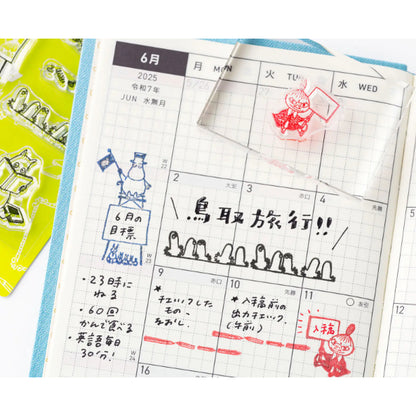 6月
2025
令和7年
JUN 水無月
月 MON
火 TUE
水 WED
W
22
2
大安
3
赤口
4
先勝
\鳥取旅行!!/
6月の
目標
W
23
・23時に
ねる
・60回
かんで食べる
・英語毎日
30分!
W
24
9
赤口
*
チェックした
もの、
なおし。
10
先勝
*入稿前の
出力チェック。
(午前)
11
友引
入稿
16
17
18